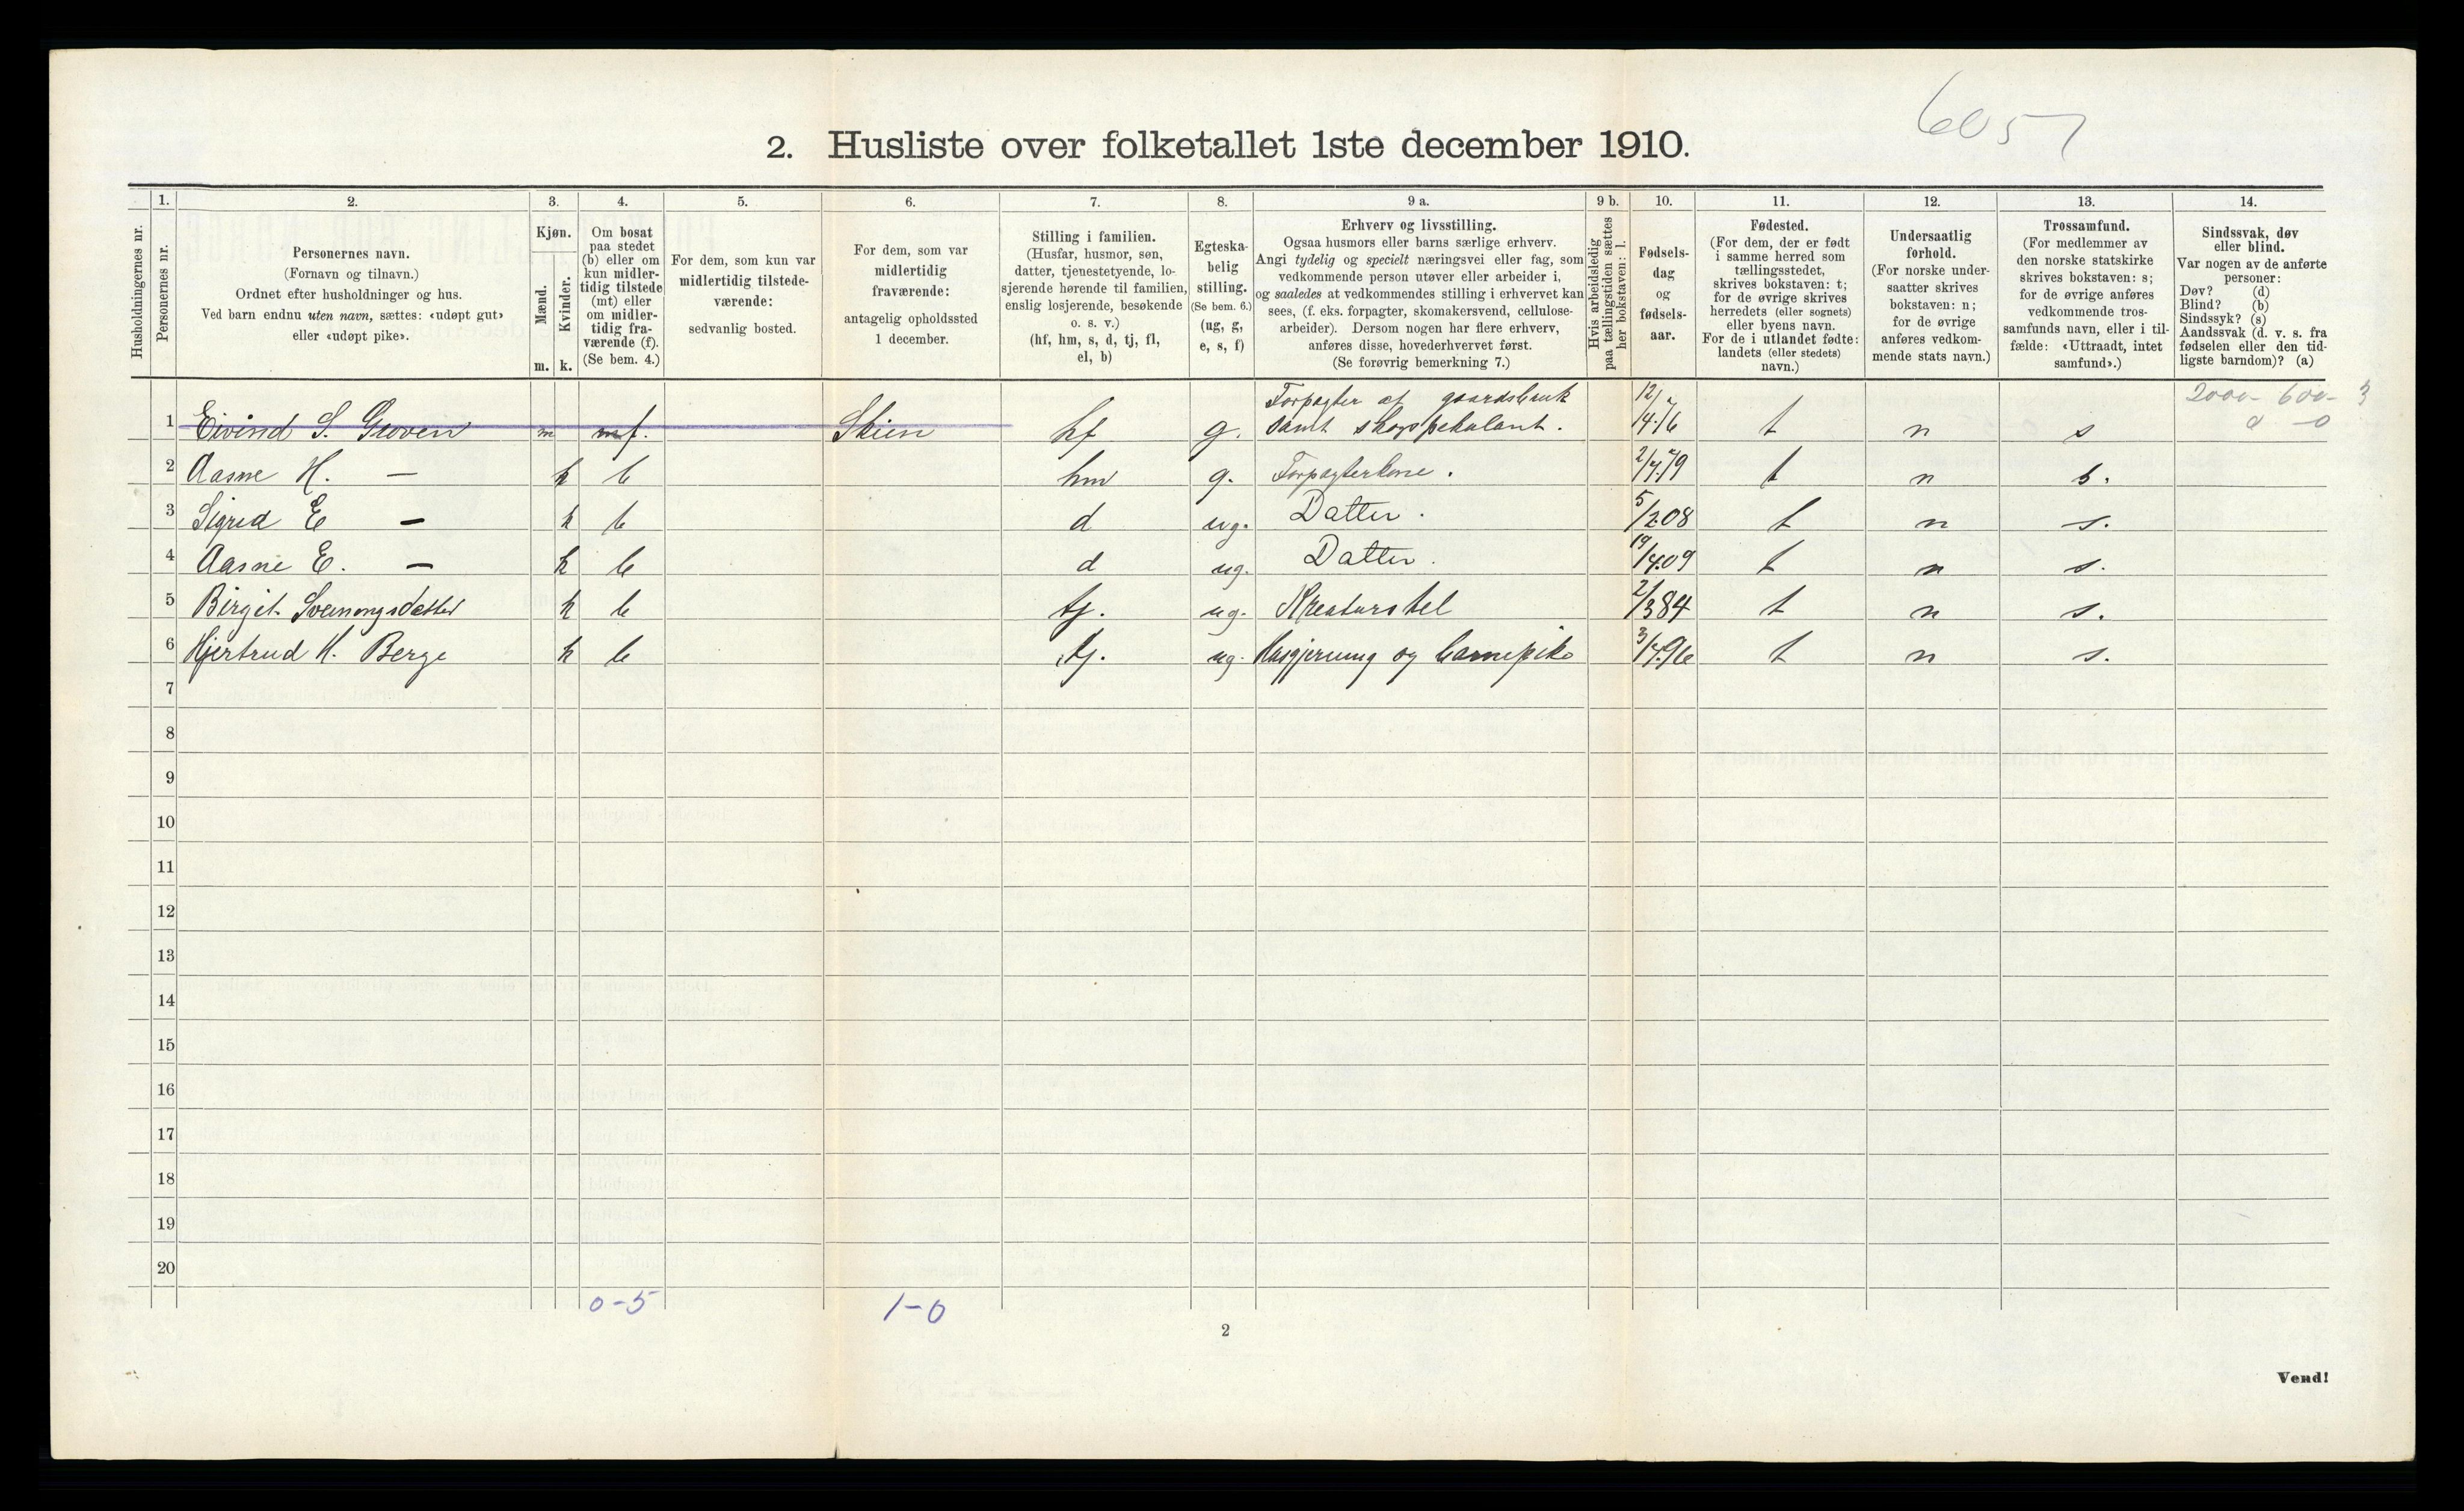 6057
2. Husliste over folketallet 1ste december 1910.
Husholdningernes nr.
1. Personernes nr.
2. Personernes navn. (Fornavn og tilnavn.) Ordnet efter husholdninger og hus. Ved barn endnu uten navn, sættes: «udøpt gut» eller «udøpt pike».
3. Kjøn. Mænd. m. Kvinder. k.
4. Om bosat paa stedet (b) eller om kun midlertidig tilstede (mt) eller om midlertidig fraværende (f). (Se bem. 4.)
5. For dem, som kun var midlertidig tilstedeværende: sedvanlig bosted.
6. For dem, som var midlertidig fraværende: antagelig opholdssted 1 december.
7. Stilling i familien. (Husfar, husmor, søn, datter, tjenestetyende, losjerende hørende til familien, enslig losjerende, besøkende o. s. v.) (hf, hm, s, d, tj, fl, el, b)
8. Egteskabelig stilling. (Se bem. 6.) (ug, g, e, s, f)
9 a. Erhverv og livsstilling. Ogsaa husmors eller barns særlige erhverv. Angi tydelig og specielt næringsvei eller fag, som vedkommende person utøver eller arbeider i, og saaledes at vedkommendes stilling i erhvervet kan sees, (f. eks. forpagter, skomakersvend, cellulosearbeider). Dersom nogen har flere erhverv, anføres disse, hovederhvervet først. (Se forøvrig bemerkning 7.)
9 b. Hvis arbeidsledig paa tællingstiden sættes her bokstaven: l.
10. Fødselsdag og fødselsaar.
11. Fødested. (For dem, der er født i samme herred som tællingsstedet, skrives bokstaven: t; for de øvrige skrives herredets (eller sognets) eller byens navn. For de i utlandet fødte: landets (eller stedets) navn.)
12. Undersaatlig forhold. (For norske undersaatter skrives bokstaven: n; for de øvrige anføres vedkommende stats navn.)
13. Trossamfund. (For medlemmer av den norske statskirke skrives bokstaven: s; for de øvrige anføres vedkommende trossamfunds navn, eller i tilfælde: «Uttraadt, intet samfund».)
14. Sindssvak, døv eller blind. Var nogen av de anførte personer: Døv? (d) Blind? (b) Sindssyk? (s) Aandssvak (d. v. s. fra fødselen eller den tidligste barndom)? (a)
2000- 600- 3
1 Eivind S. Groven m f. Skien hf g. Forpagter af gaardsbruk samt skogspekulant. 12/4.76 t n s
2 Aasne H. — k b hm g. Forpagterkone. 2/7.79 t n s.
3 Sigrid E — k b d ug. Datter. 5/2 08 t n s.
4 Aasne E. — k b d ug. Datter. 19/4.09 t n s.
5 Birgit Sveinungsdatter k b tj. ug. Kreaturstel 2/3 84 t n s.
6 Hjertrud H. Berge k b tj. ug. Husgjerning og barnepike 3/7.96 t n s.
7
8
9
10
11
12
13
14
15
16
17
18
19
20
0-5 1-0
2
Vend!